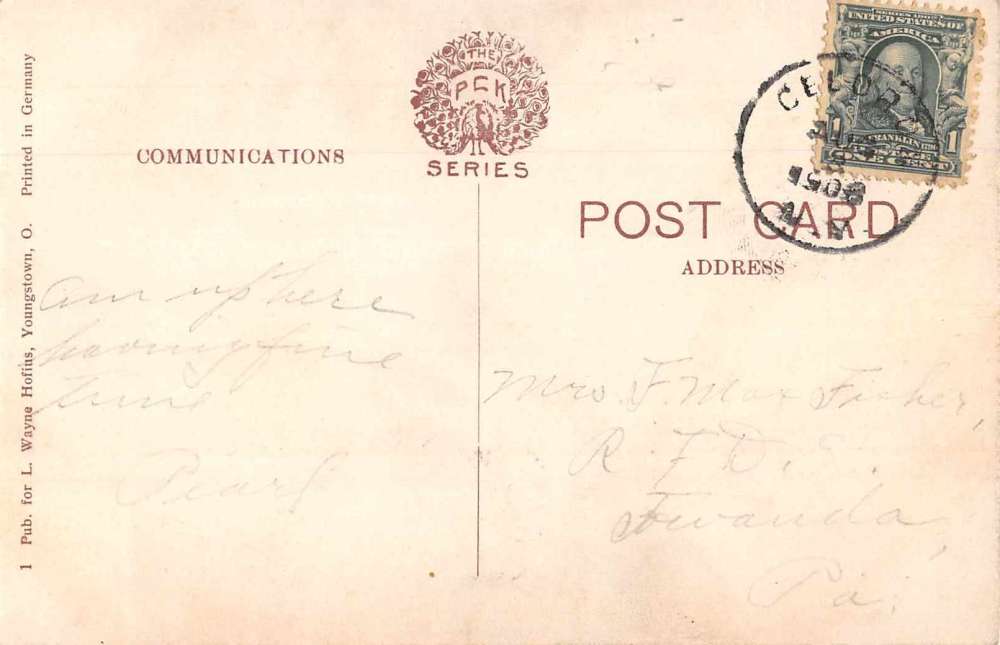 1 Pub. for L. Wayne Hofius, Youngstown, O. Printed in Germany
THE
PCK
SERIES
COMMUNICATIONS
am up here
having fine
time
Pearl
SERIES 1902
UNITED STATES OF
AMERICA
FRANKLIN
1 ONE CENT 1
CELORO
1908
N.Y.
POST CARD
ADDRESS
Mrs. F. Max Fisher,
R. F. D.
Towanda,
Pa.